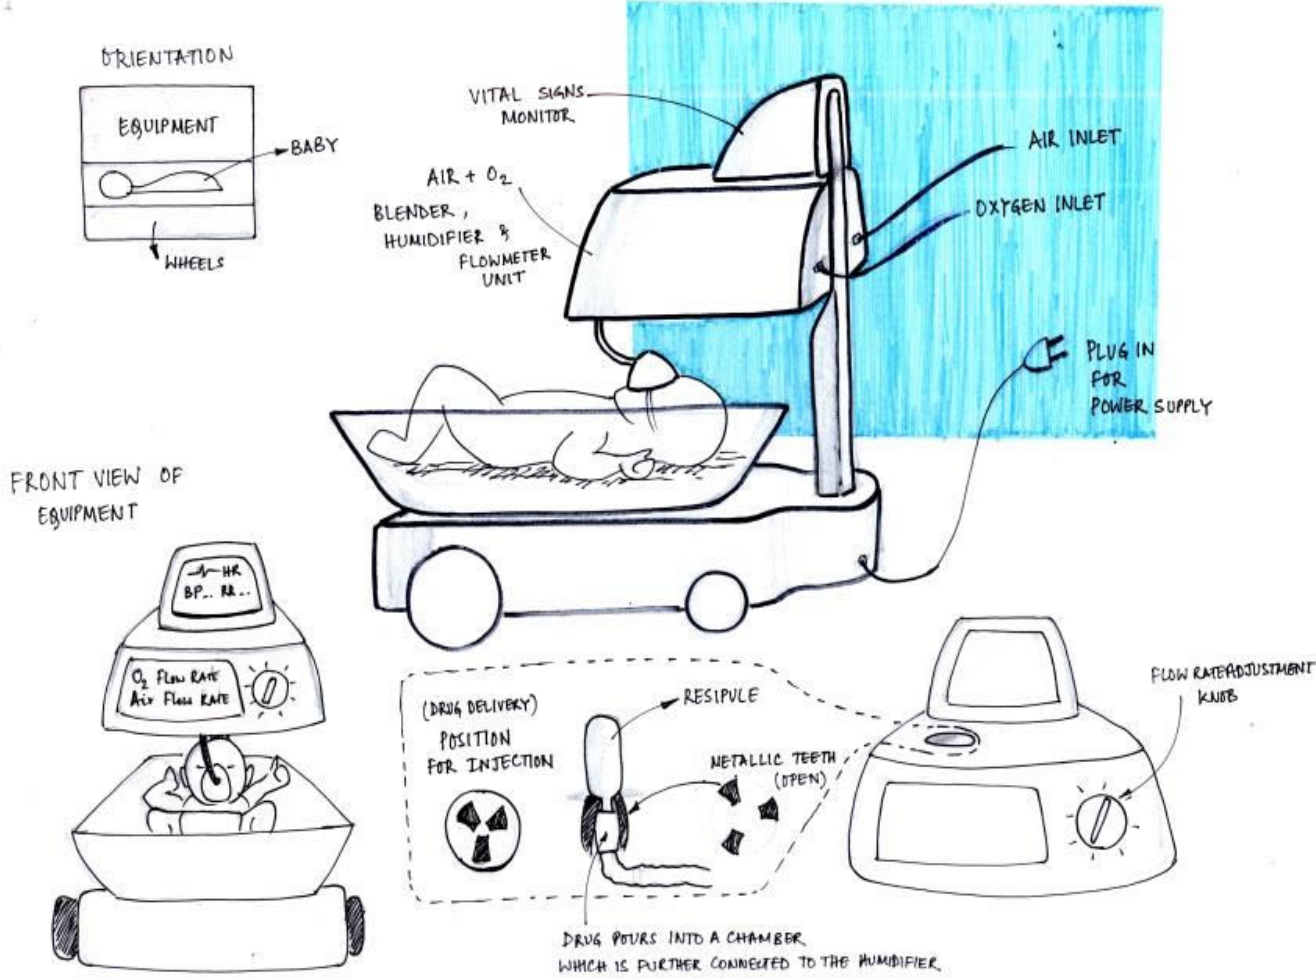 ORIENTATION
EQUIPMENT
BABY
WHEELS
VITAL SIGNS
MONITOR
AIR + O2
BLENDER,
HUMIDIFIER &
FLOWMETER
UNIT
AIR INLET
OXYGEN INLET
PLUG IN
FOR
POWER SUPPLY
FRONT VIEW OF
EQUIPMENT
HR
BP... RR...
O2 FLOW RATE
Air Flow RATE
(DRUG DELIVERY)
POSITION
FOR INJECTION
RESIPULE
METALLIC TEETH
(OPEN)
DRUG POURS INTO A CHAMBER
WHICH IS FURTHER CONNECTED TO THE HUMIDIFIER.
FLOW RATE ADJUSTMENT
KNOB